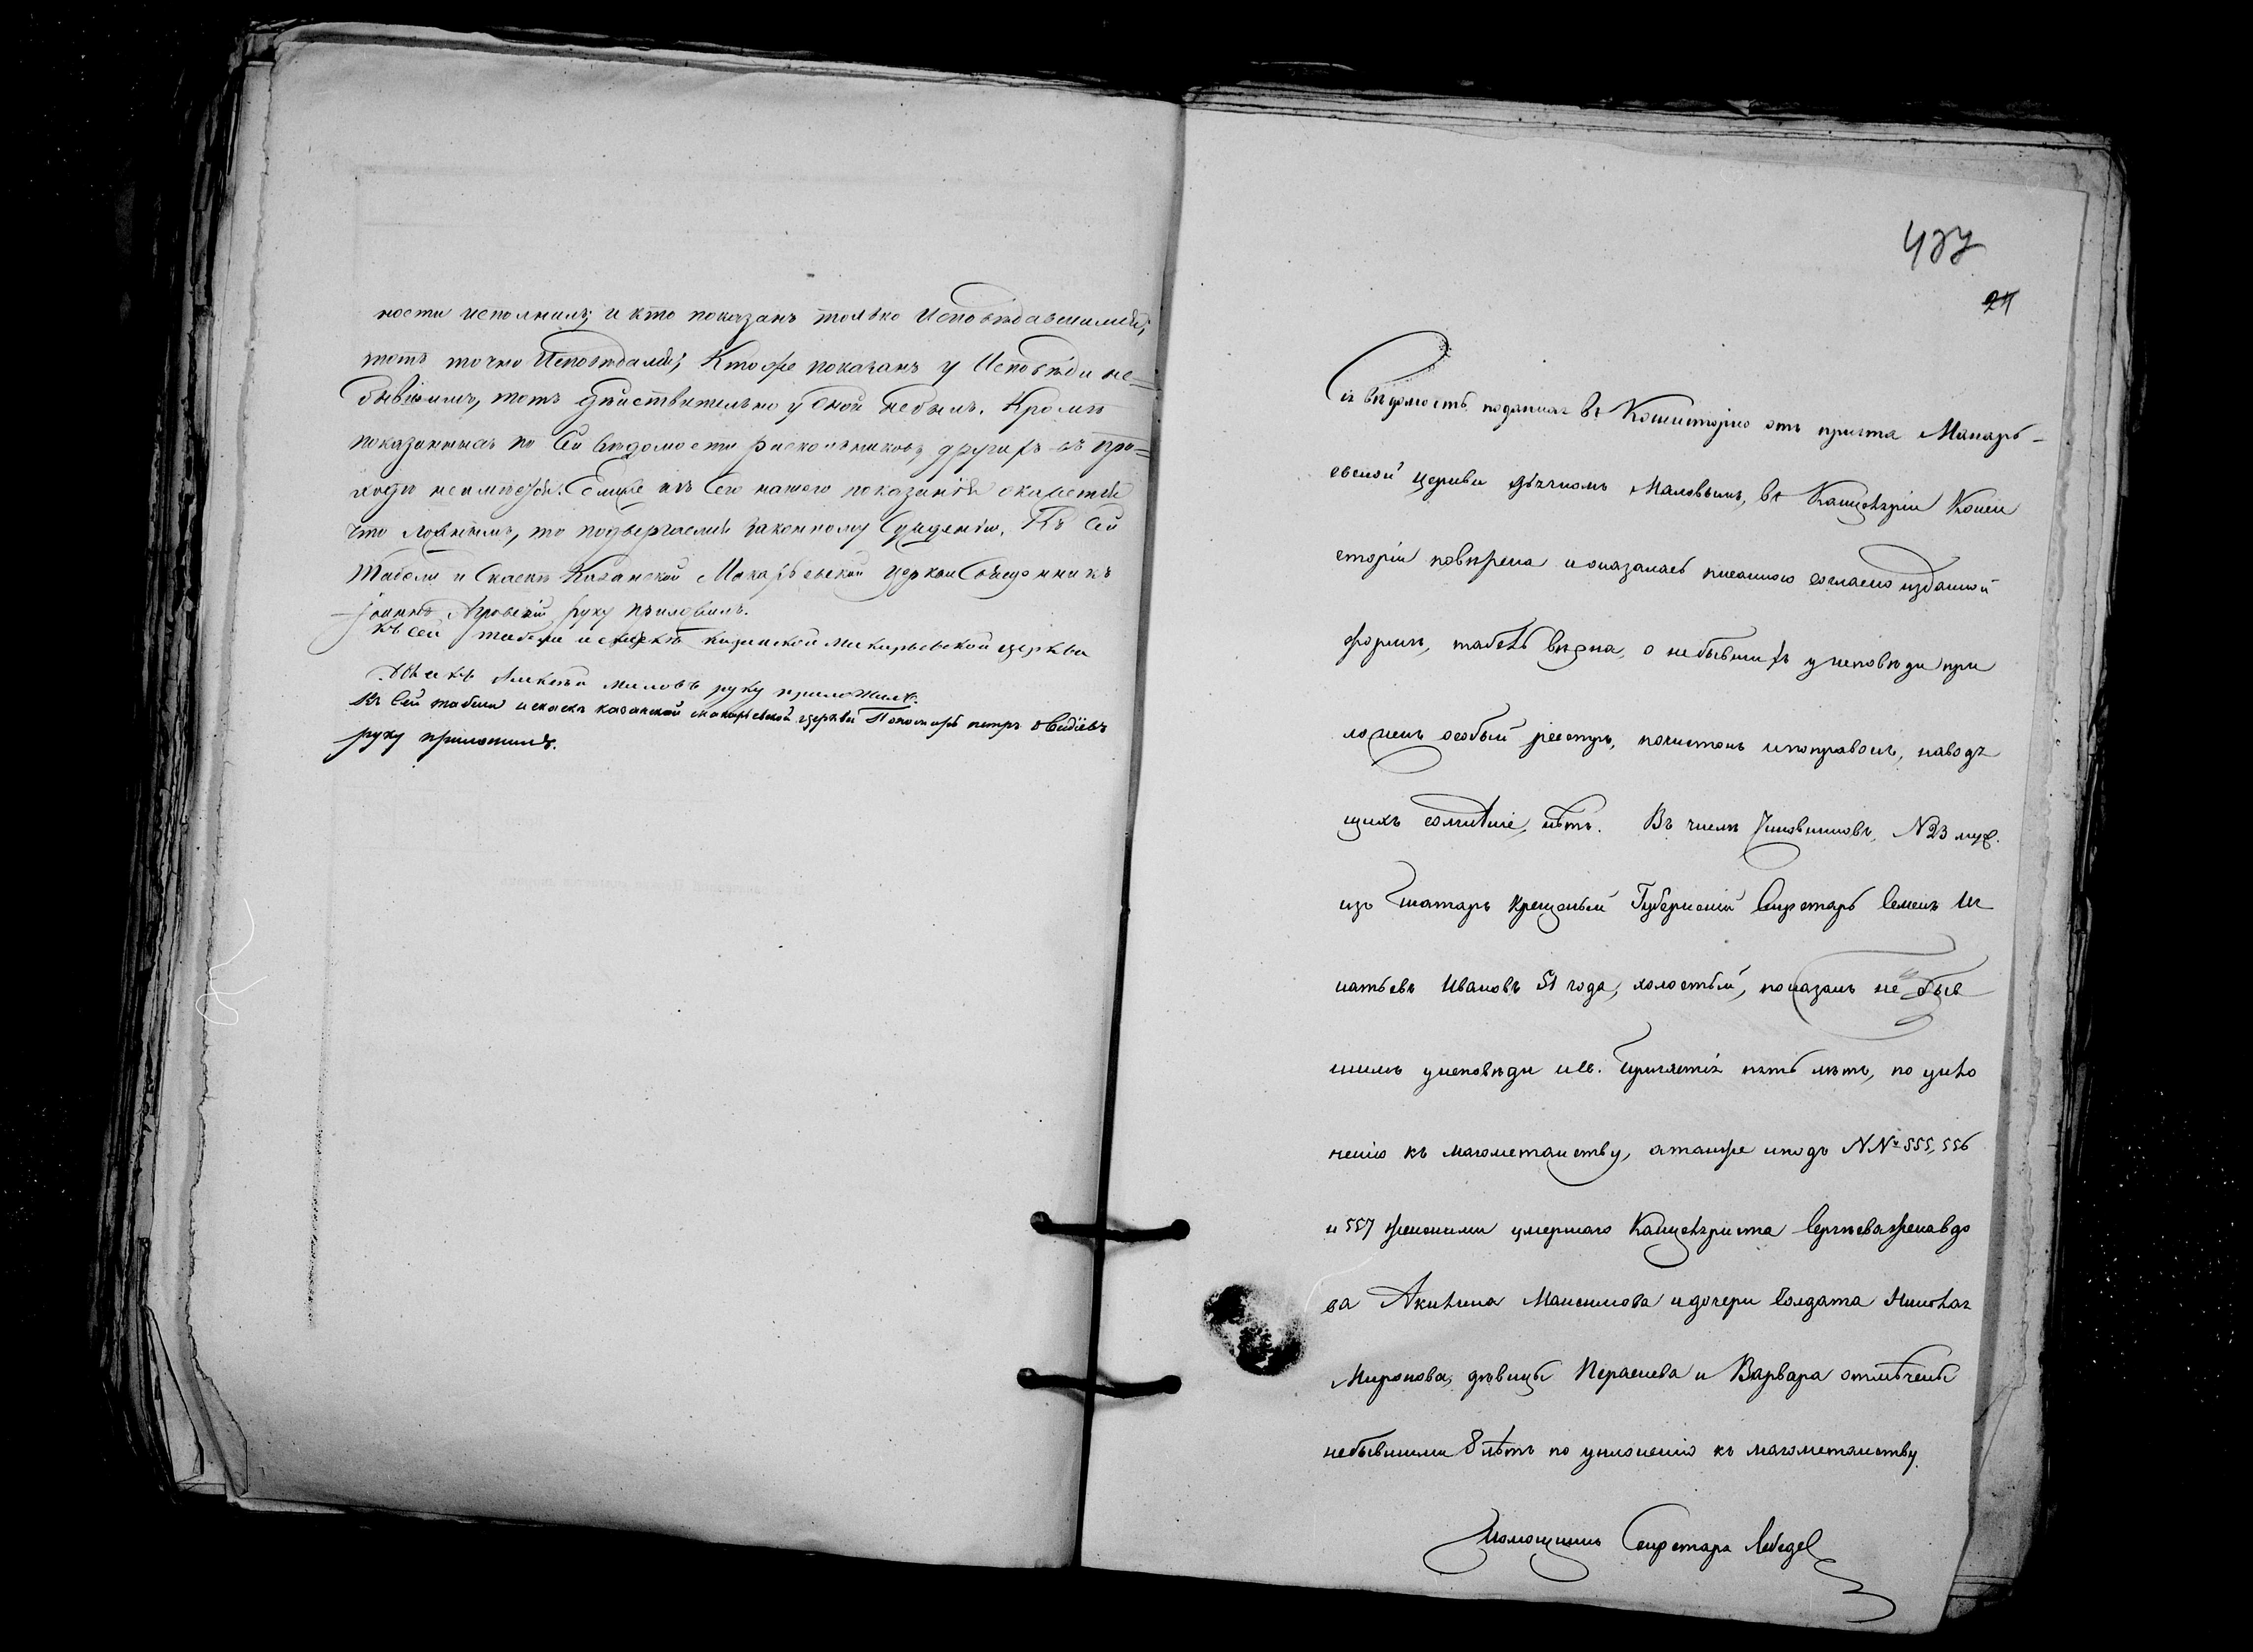 ности исполнилъ; и кто показанъ только Исповѣдавшимся,
тотъ точно Исповѣдался; Ктоже показанъ у Исповѣди не=
бывшимъ, тотъ дѣйствительно у оной небылъ. Кромѣ
показанныхъ по Сей вѣдомости раскольниковъ, другихъ въ при=
ходѣ неимѣется. Если же изъ сего нашего показанія окажется
что ложнымъ, то подвергаемся законному Сужденію. Къ Сей
Табели и Сказкѣ Казанской Макарьевской церкви Священникъ
Іоаннъ руку приложилъ.
Къ сей табели и сказкѣ казанской макарьевской церкви
Дьячекъ Алексѣй маловъ руку приложилъ.
Къ Сей табели и сказкѣ казанской макарьевской церкви Пономарь петръ овидіевъ
руку приложилъ.
477
24
Сія вѣдомость поданная въ Консисторію отъ причта Макарь-
евской церкви дьячкомъ Маловымъ, въ Канцеляріи Конси
сторіи повѣрена и оказалась писанною согласно изданной
формѣ, табель вѣрна, о небывшихъ у исповѣди при
ложенъ особый реестръ, почистокъ и поправокъ, наводя
щихъ сомнѣніе, нѣтъ. Въ числѣ Чиновниковъ, N 23 муж.
изъ татаръ крещеный Губернскій Секретарь Семенъ Иг
натьевъ Ивановъ 51 года, холостый, показанъ не быв
шимъ у исповѣди и св. Причастія пять лѣтъ, по укло
ненію къ магометанству, а также и подъ NN° 555, 556
и 557 женскими умершаго Канцеляриста Сергѣева жена вдо
ва Акилина Максимова и дочери Солдата Николая
Миронова, дѣвицы Парасшева и Варвара отмѣчены
небывшими 8 лѣтъ по уклоненію къ магометанству.
Помощникъ Секретаря Лебедев